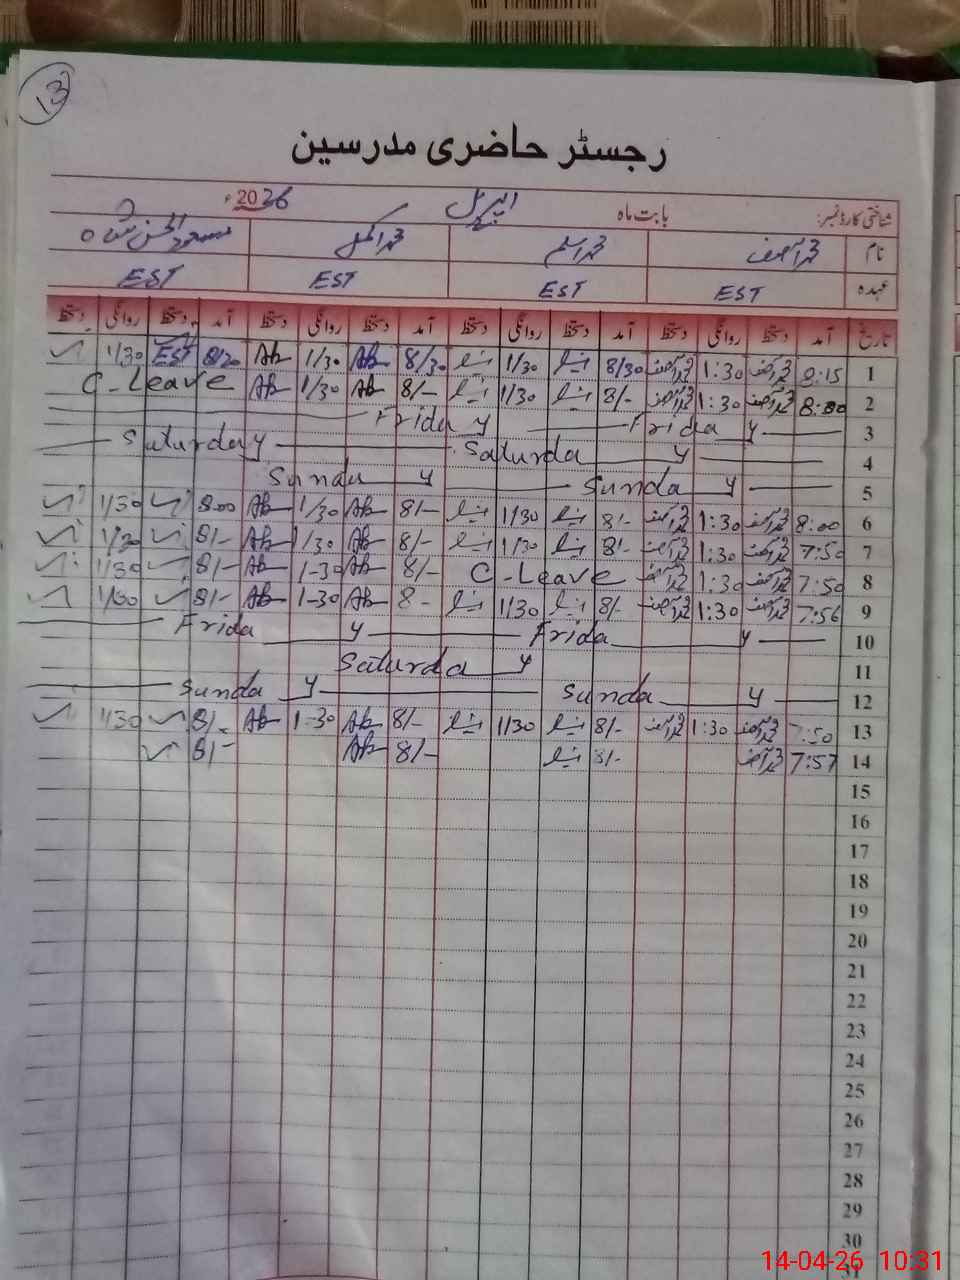 13
رجسٹر حاضری مدرسین
شناختی کارڈ نمبر: بابت ماہ اپریل 2026ء
نام محمد آصف محمد اسلم محمد اکمل
عہدہ EST EST EST EST
تاریخ آمد دستخط روانگی دستخط آمد دستخط روانگی دستخط آمد دستخط روانگی دستخط آمد دستخط روانگی دستخط
1 8:15 محمد آصف 1:30 محمد آصف 8/30 1/30 8/30 Ab 1/30 Ab 8/30 EST 1/30
2 8:00 محمد آصف 1:30 محمد آصف 8/- 1/30 8/- Ab 1/30 Ab C-Leave
3 Friday Friday
4 Saturday Saturday
5 Sunday Sunday
6 8:00 محمد آصف 1:30 محمد آصف 8/- 1/30 8/- Ab 1/30 Ab 8:00 1/30
7 7:50 محمد آصف 1:30 محمد آصف 8/- 1/30 8/- Ab 1/30 Ab 8/- 1/30
8 7:50 محمد آصف 1:30 محمد آصف C-Leave 8/- Ab 1-30 Ab 8/- 1/30
9 7:56 محمد آصف 1:30 محمد آصف 8/- 1/30 8- Ab 1-30 Ab 8/- 1/30
10 Friday Friday
11 Saturday
12 Sunday Sunday
13 7:50 محمد آصف 1:30 محمد آصف 8/- 1/30 8/- Ab 1-30 Ab 8/- 1/30
14 7:57 محمد آصف 8/- 8/- Ab 8/-
15
16
17
18
19
20
21
22
23
24
25
26
27
28
29
30
31
14-04-26 10:31